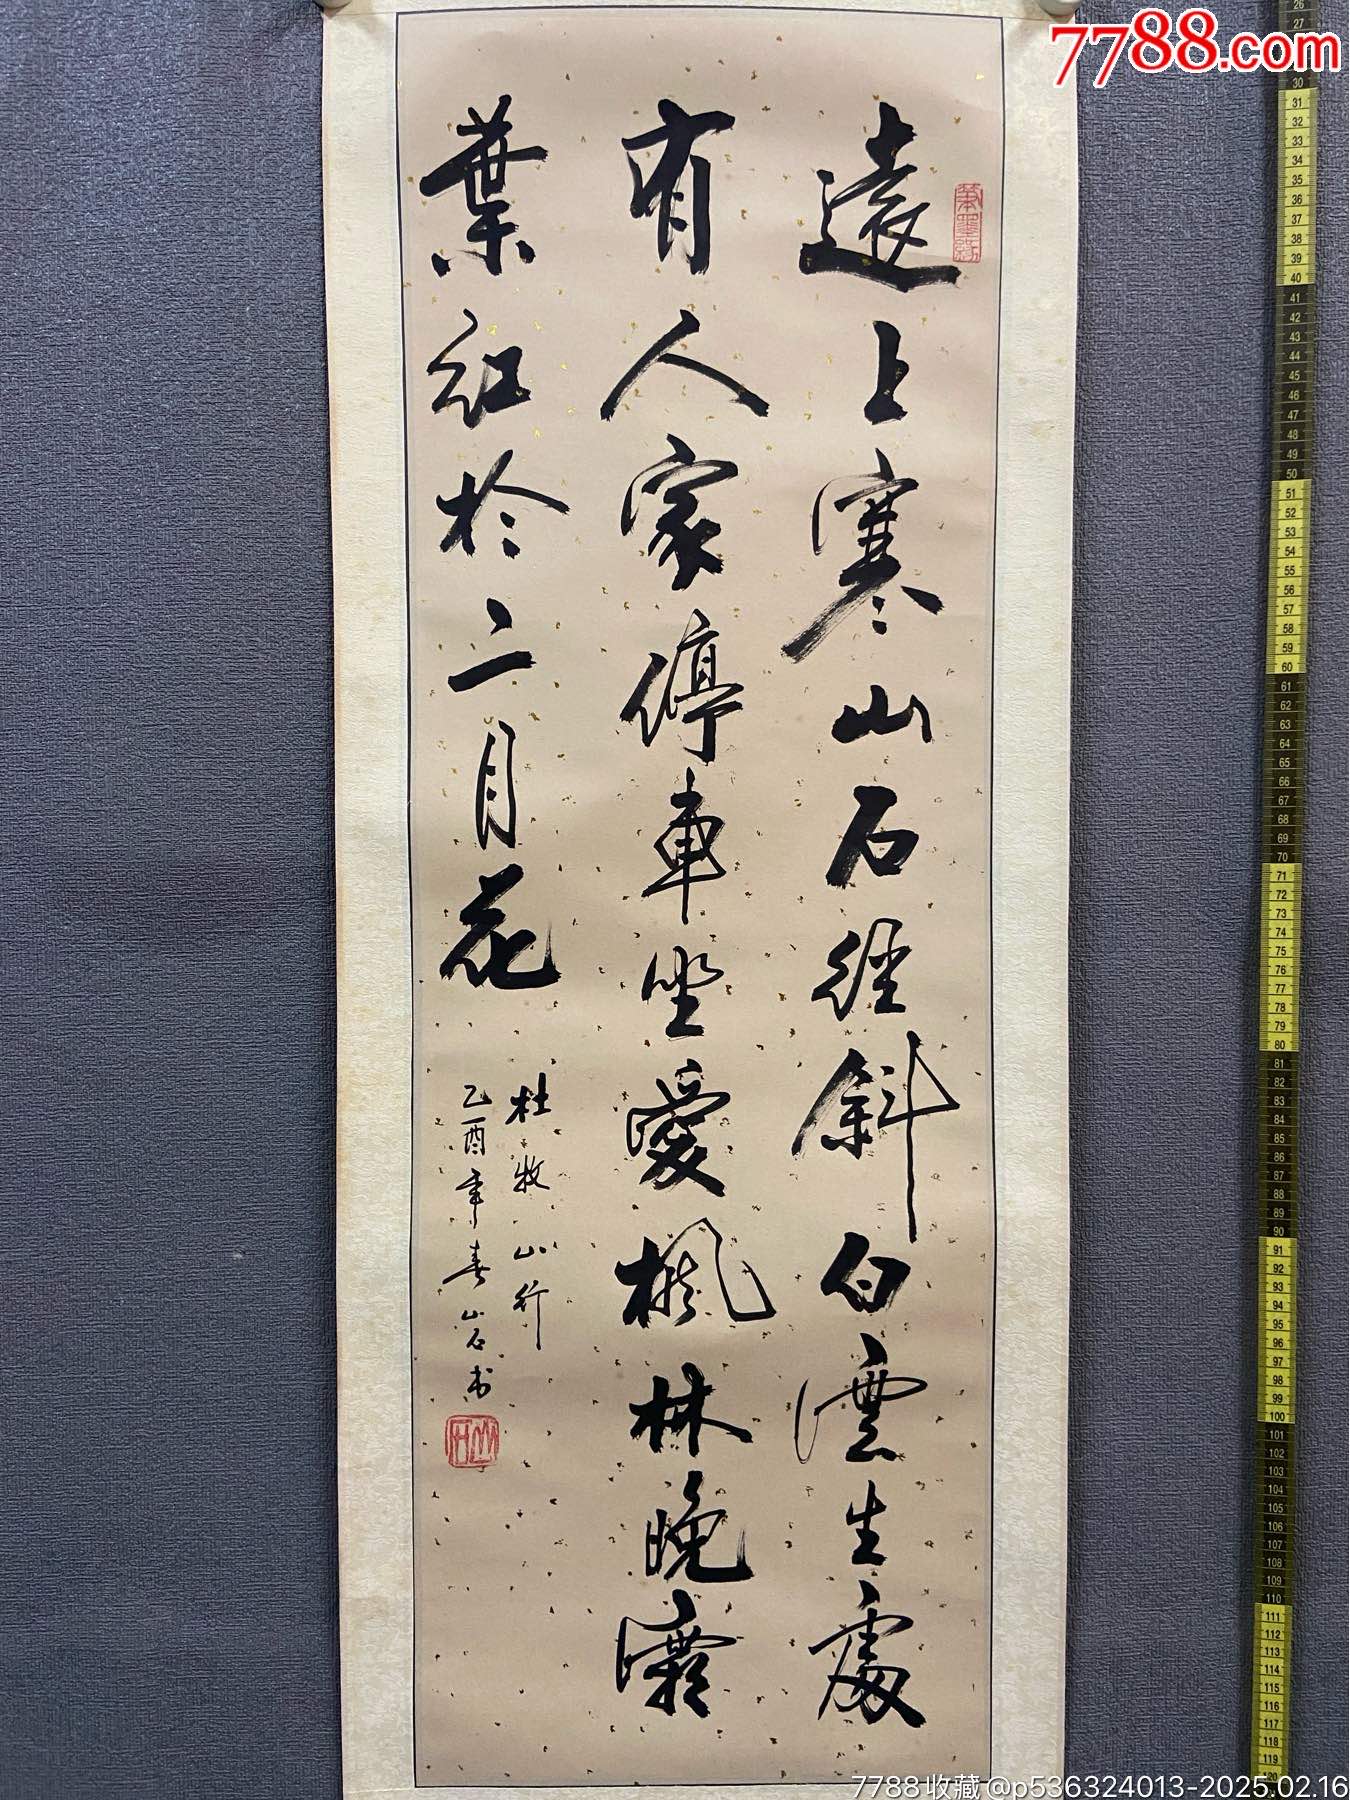 7788.com
遠上寒山石徑斜白雲生處
有人家停車坐愛楓林晚霜
葉紅於二月花
杜牧山行
乙酉年春山石书
筆墨緣
山石
7788收藏@p536324013-2025.02.16